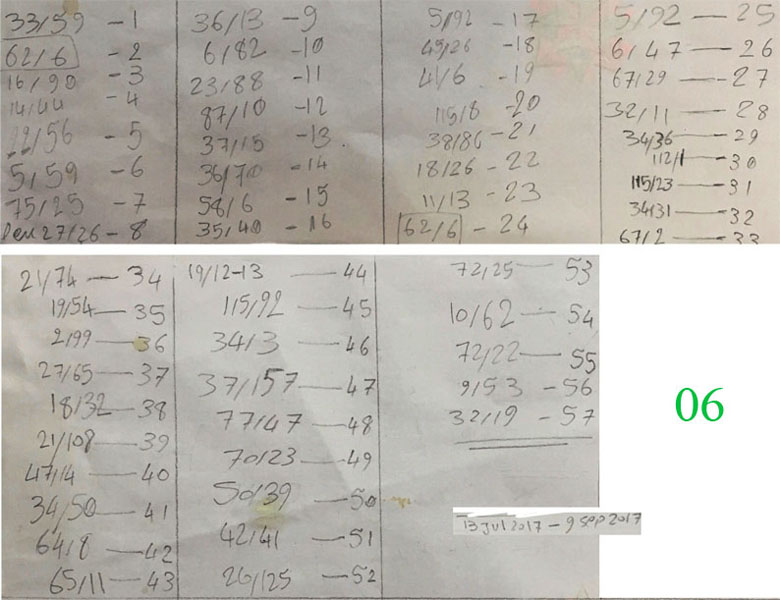 33/59 - 1
62/6 - 2
16/90 - 3
14/44 - 4
22/56 - 5
5/59 - 6
75/25 - 7
27/26 - 8
36/13 - 9
6/82 - 10
23/88 - 11
87/10 - 12
37/15 - 13
36/70 - 14
58/6 - 15
35/40 - 16
5/92 - 17
45/26 - 18
41/6 - 19
115/8 - 20
38/86 - 21
18/26 - 22
11/13 - 23
62/6 - 24
5/92 — 25
6/47 — 26
67/29 — 27
32/11 — 28
34/36 — 29
112/1 — 30
115/23 — 31
34/31 — 32
67/2 — 33
21/74 — 34
19/54 — 35
2/99 — 36
27/65 — 37
18/32 — 38
21/108 — 39
47/14 — 40
34/50 — 41
64/8 — 42
65/11 — 43
19/12-13 — 44
115/92 — 45
34/3 — 46
37/157 — 47
77/47 — 48
70/23 — 49
50/39 — 50
42/41 — 51
26/125 — 52
72/25 — 53
10/62 — 54
72/22 — 55
9/53 - 56
32/19 - 57
06
13 Jul 2017 - 9 Sep 2017